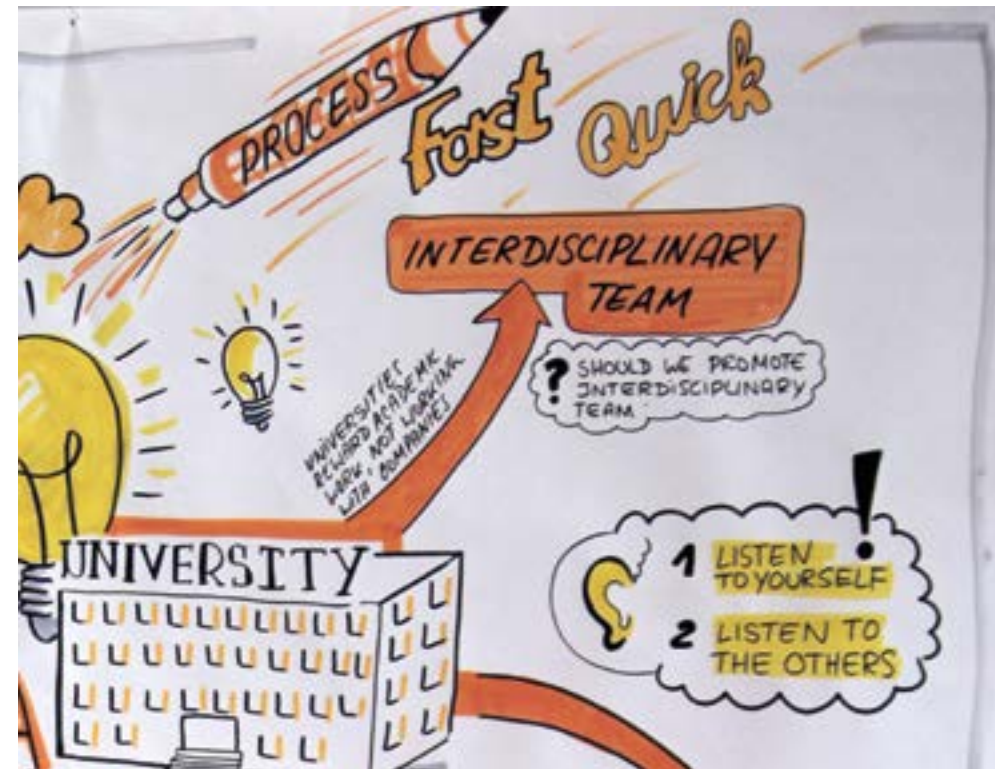 PROCESS
Fast
Quick
INTERDISCIPLINARY
TEAM
? SHOULD WE PROMOTE
INTERDISCIPLINARY
TEAM
UNIVERSITIES
REWARD ACADEMIK
WORK, NOT WORKING
WITH COMPANIES
!
1 LISTEN
TO YOURSELF
2 LISTEN TO
THE OTHERS
UNIVERSITY